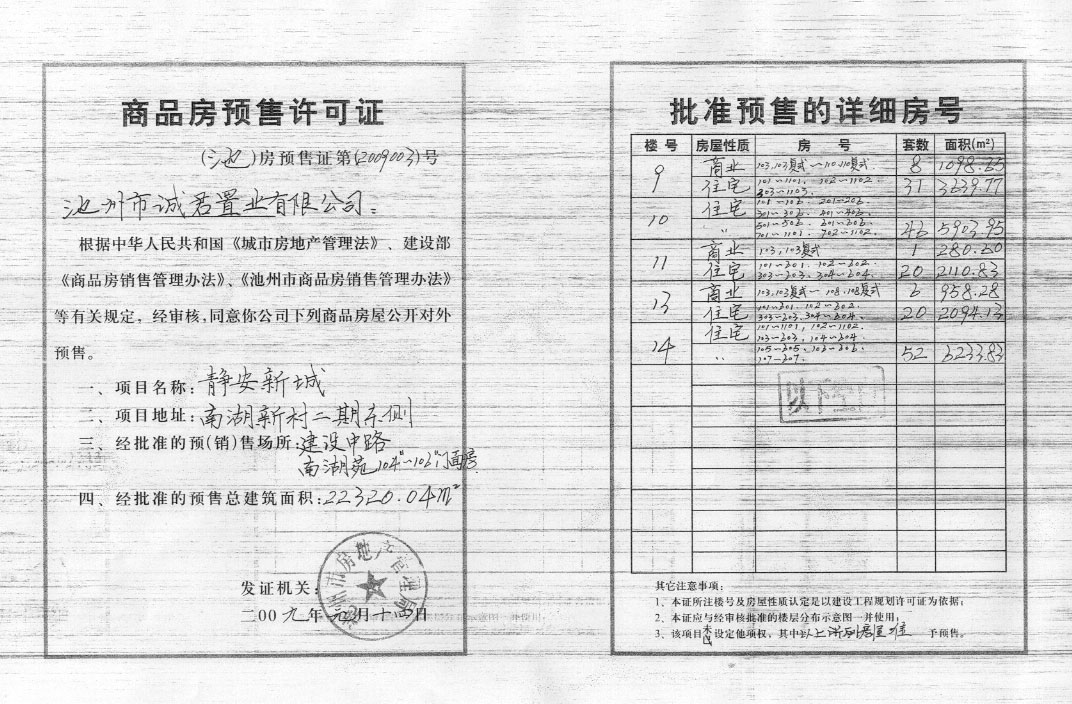 商品房预售许可证
(池)房预售证第(2009003)号
池州市诚君置业有限公司：
根据中华人民共和国《城市房地产管理法》、建设部
《商品房销售管理办法》、《池州市商品房销售管理办法》
等有关规定，经审核，同意你公司下列商品房屋公开对外
预售。
一、项目名称：静安新城
二、项目地址：南湖新村二期东侧
三、经批准的预(销)售场所：建设中路
南湖苑104#~102#门面房
四、经批准的预售总建筑面积：22320.04m²
发证机关：
二00九年 月十 日
池州市房地产管理局
批准预售的详细房号
楼号 房屋性质 房号 套数 面积(m²)
9 商业 103,103复式~110,110复式 8 1098.25
住宅 101~1101、102~1102、 31 3639.77
303~1103.
10 住宅 101~106、201~206、
301~306、401~406、
〃 501~506、601~606、 46 5903.95
701~1101、702~1102.
11 商业 103,103复式 1 280.60
住宅 101~601、102~602、 20 2110.83
303~603、304~604.
13 商业 103,103复式~108,108复式 6 958.28
住宅 101~601、102~602、 20 2094.13
303~603、304~604.
14 住宅 101~1101,102~1102.
103~603、104~604.
〃 105~605、106~606、 52 6233.83
107~607.
以下
其它注意事项：
1、本证所注楼号及房屋性质认定是以建设工程规划许可证为依据；
2、本证应与经审核批准的楼层分布示意图一并使用；
3、该项目未设定他项权，其中以上所列房屋准 予预售。